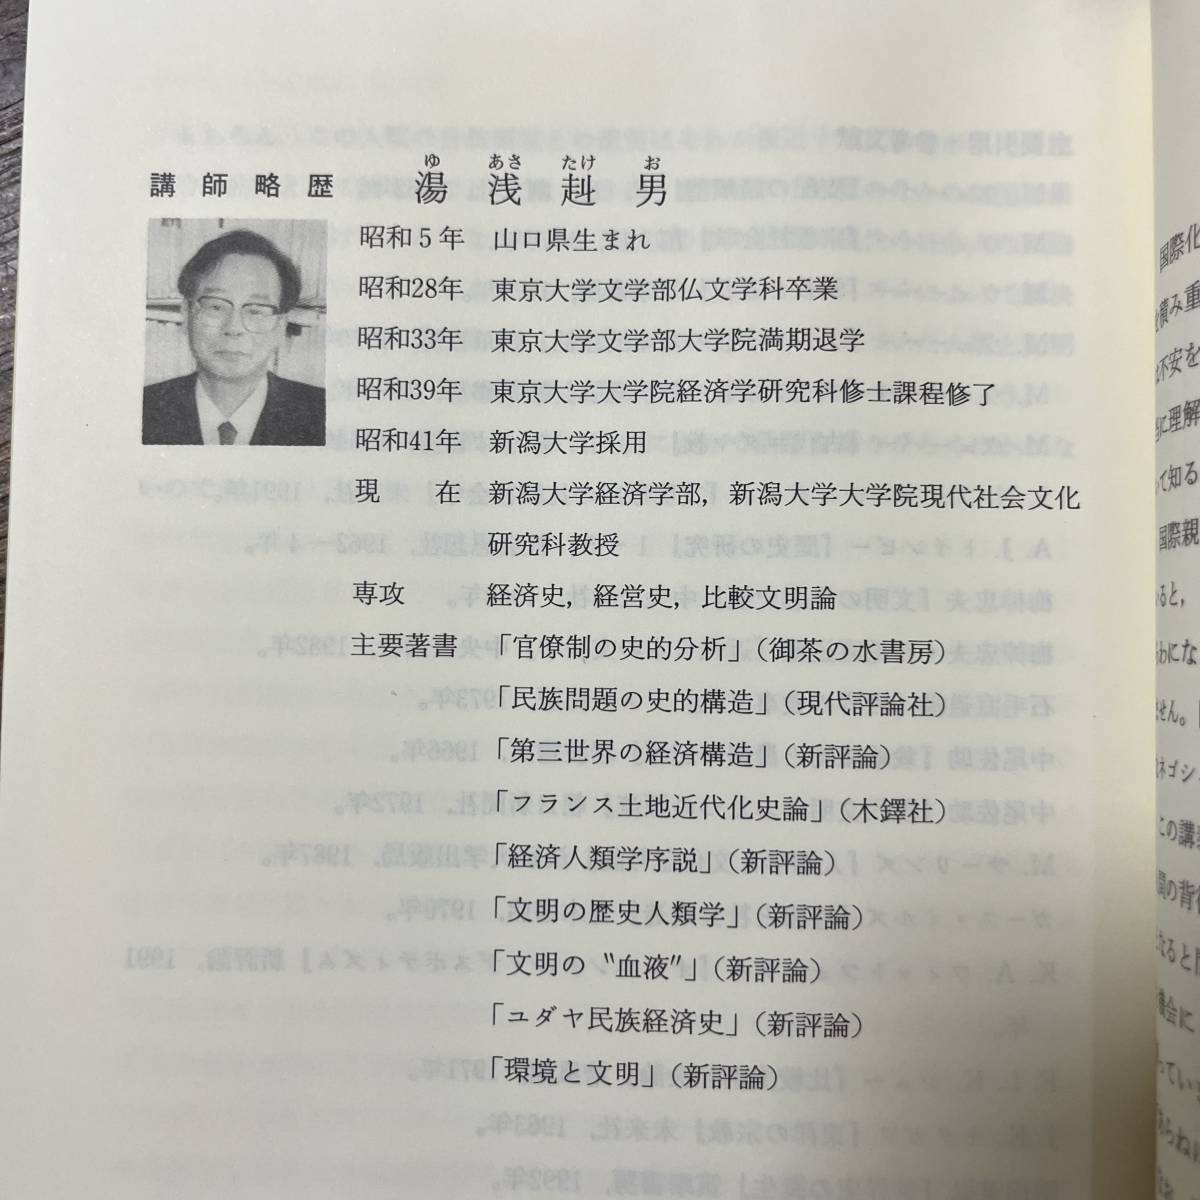 講師略歴 湯浅赳男
ゆ あさ たけ お
昭和5年 山口県生まれ
昭和28年 東京大学文学部仏文学科卒業
昭和33年 東京大学文学部大学院満期退学
昭和39年 東京大学大学院経済学研究科修士課程修了
昭和41年 新潟大学採用
現在 新潟大学経済学部，新潟大学大学院現代社会文化
研究科教授
専攻 経済史，経営史，比較文明論
主要著書 「官僚制の史的分析」（御茶の水書房）
「民族問題の史的構造」（現代評論社）
「第三世界の経済構造」（新評論）
「フランス土地近代化史論」（木鐸社）
「経済人類学序説」（新評論）
「文明の歴史人類学」（新評論）
「文明の〝血液〟」（新評論）
「ユダヤ民族経済史」（新評論）
「環境と文明」（新評論）
国際化
積み重
不安を
に理解
て知る
国際親
ると，
わにな
せん。
ネゴシ
この講
間の背
なると
機会に
ってい